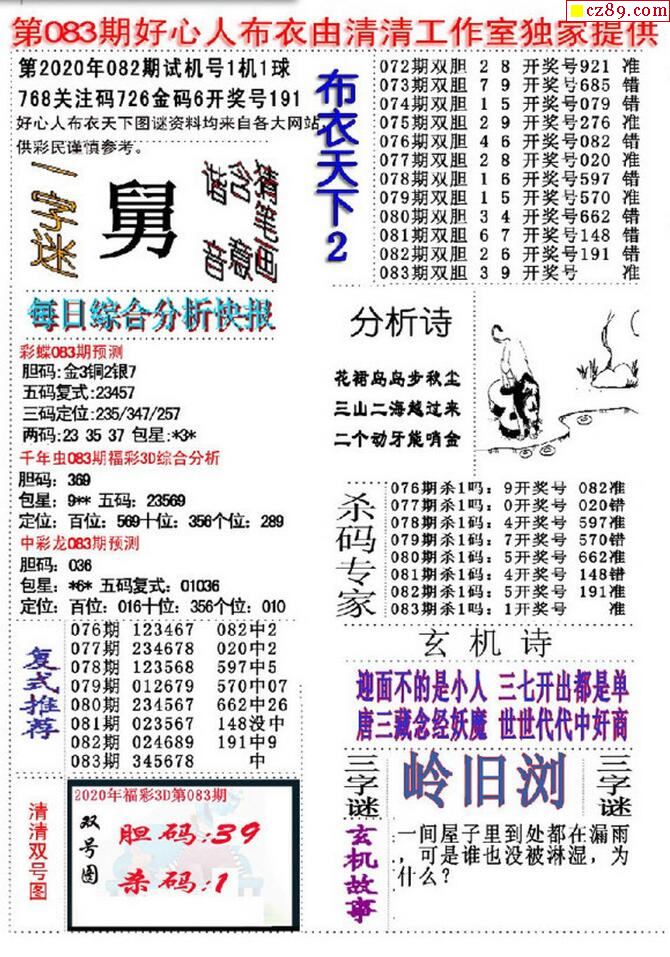 cz89.com
第083期好心人布衣由清清工作室独家提供
第2020年082期试机号1机1球
768关注码726金码6开奖号191
好心人布衣天下图谜资料均来自各大网站,
供彩民谨慎参考。
一字迷
舅
猜笔画
含意
谐音
每日综合分析快报
彩蝶083期预测
胆码:金3铜2银7
五码复式:23457
三码定位:235/347/257
两码:23 35 37 包星:*3*
千年虫083期福彩3D综合分析
胆码: 369
包星: 9** 五码: 23569
定位: 百位: 569十位: 356个位: 289
中彩龙083期预测
胆码: 036
包星: *6* 五码复式: 01036
定位: 百位: 016十位: 356个位: 010
复式推荐
076期 123467 082中2
077期 234678 020中2
078期 123568 597中5
079期 012679 570中07
080期 234567 662中26
081期 023567 148没中
082期 024689 191中9
083期 345678 中
清清双号图
2020年福彩3D第083期
双号图
胆码:39
杀码:1
布衣天下2
072期双胆 2 8 开奖号921 准
073期双胆 7 9 开奖号685 错
074期双胆 1 5 开奖号079 错
075期双胆 2 9 开奖号276 准
076期双胆 4 6 开奖号082 错
077期双胆 2 8 开奖号020 准
078期双胆 1 6 开奖号597 错
079期双胆 1 5 开奖号570 准
080期双胆 3 4 开奖号662 错
081期双胆 6 7 开奖号148 错
082期双胆 2 6 开奖号191 错
083期双胆 3 9 开奖号 准
分析诗
花裙岛岛步秋尘
三山二海越过来
二个动牙能哨金
杀码专家
076期杀1吗: 9开奖号 082准
077期杀1吗: 0开奖号 020错
078期杀1码: 4开奖号 597准
079期杀1码: 7开奖号 570错
080期杀1码: 5开奖号 662准
081期杀1码: 4开奖号 148错
082期杀1码: 5开奖号 191准
083期杀1吗: 1开奖号 准
玄机诗
迎面不的是小人 三七开出都是单
唐三藏念经妖魔 世世代代中奸商
三字谜
岭旧浏
三字谜
玄机故事
一间屋子里到处都在漏雨
，可是谁也没被淋湿，为
什么？